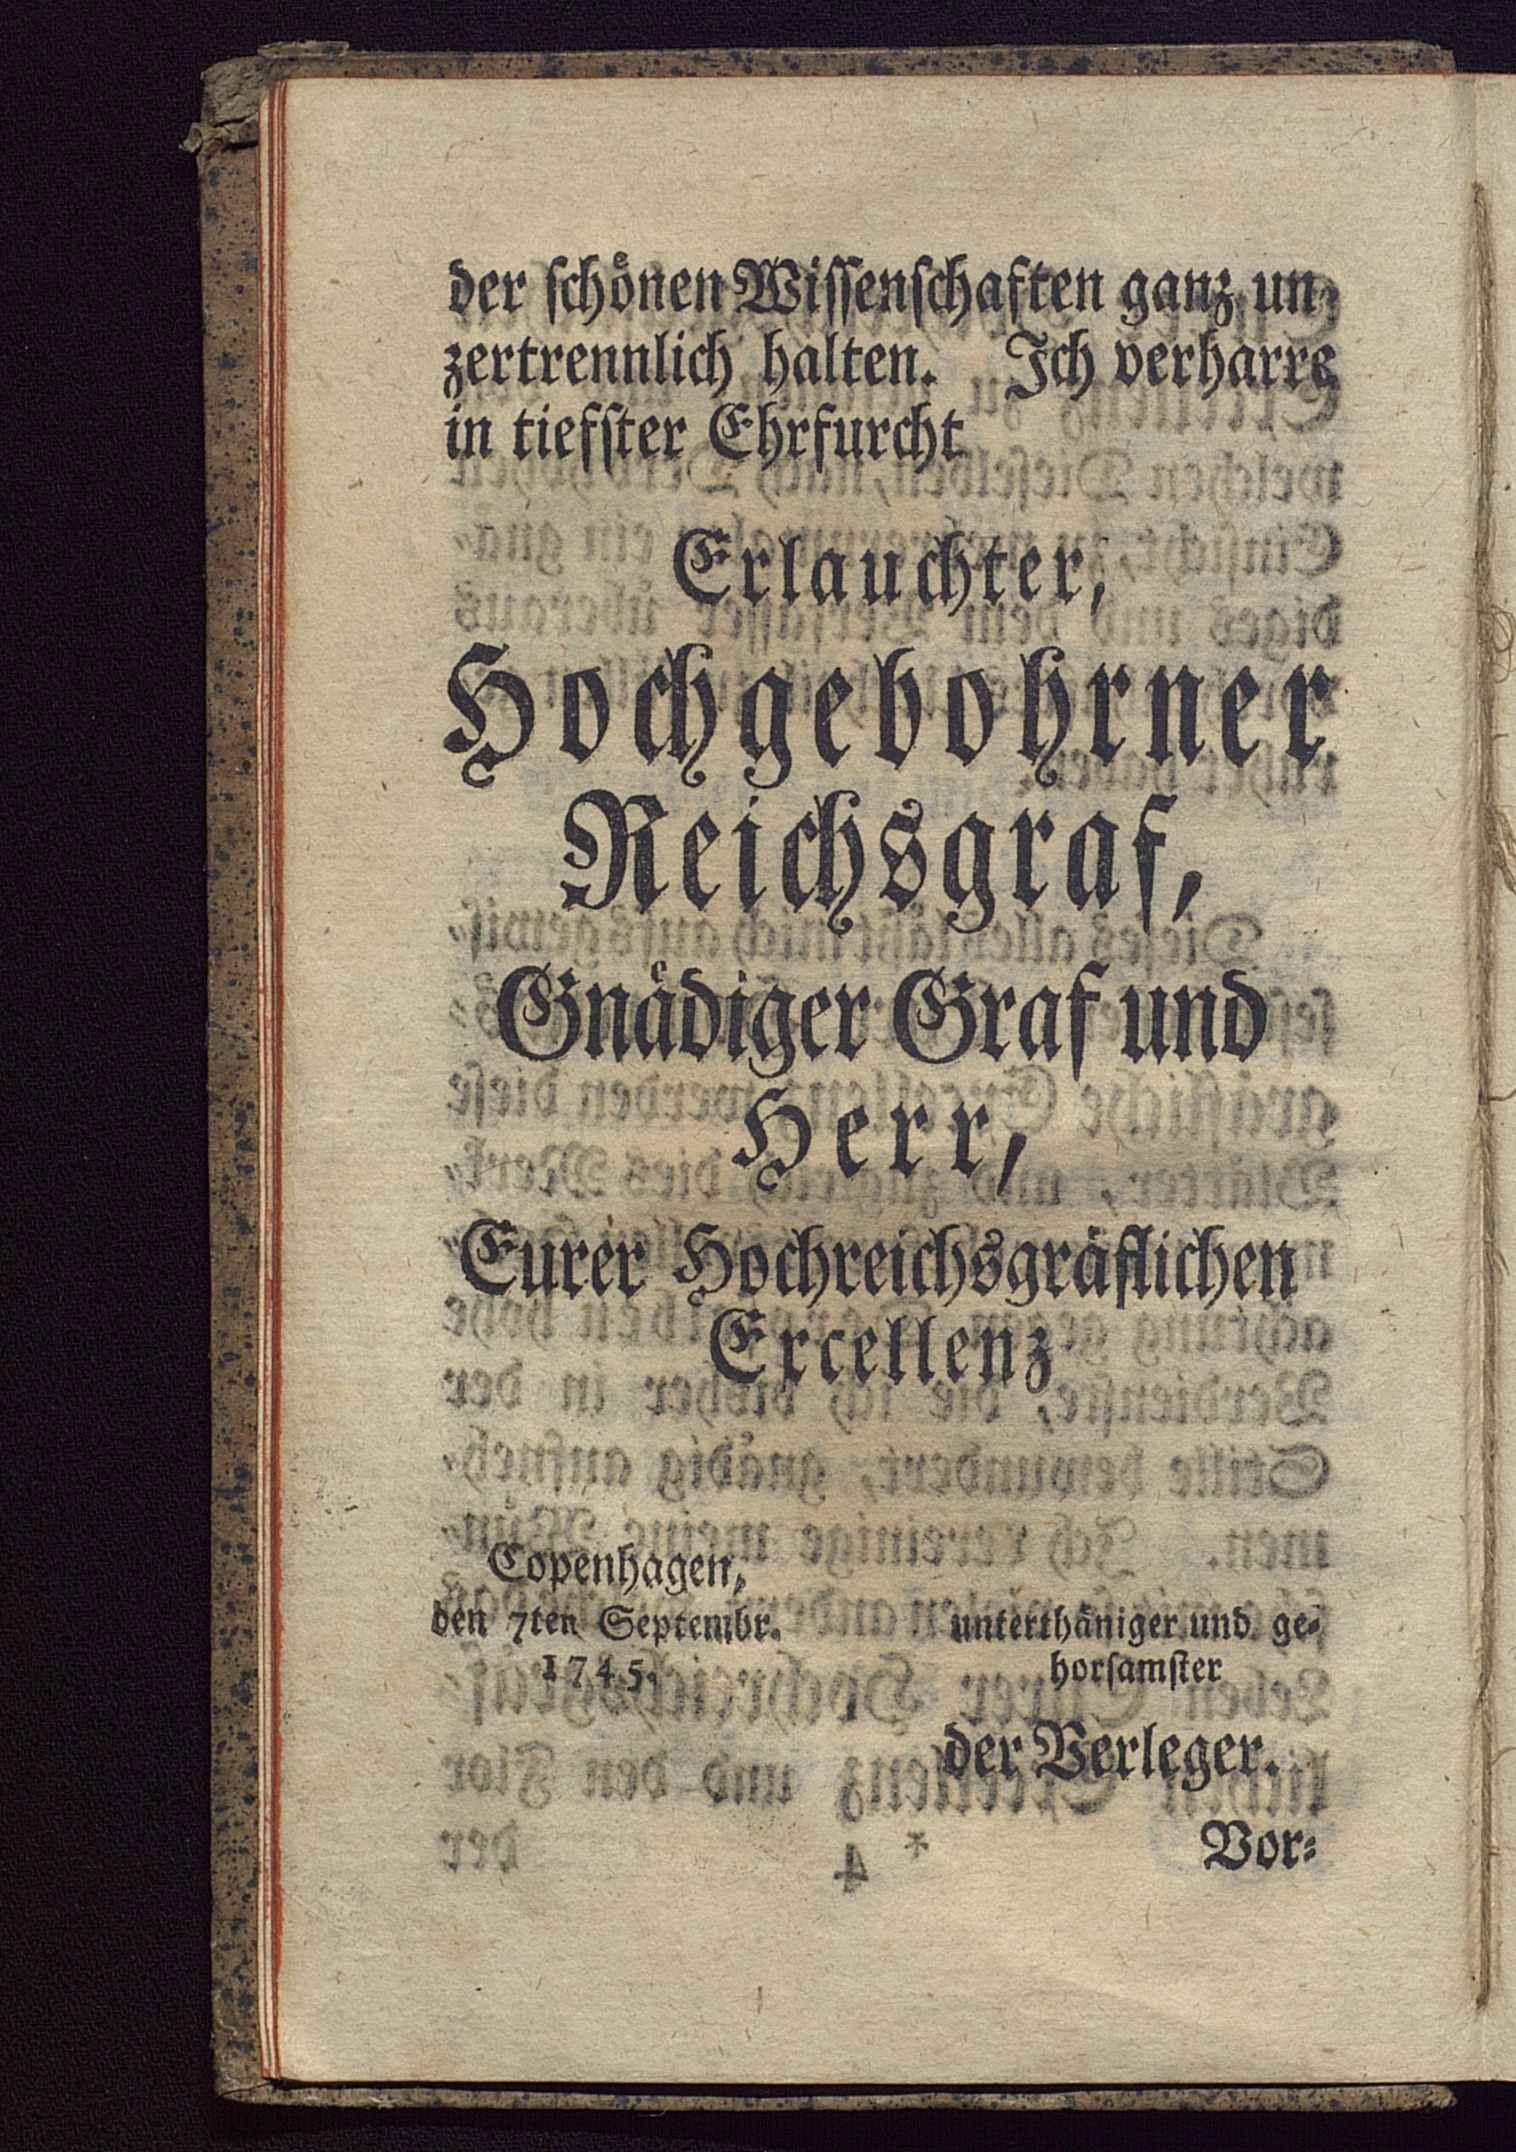 der schönen Wissenschaften ganz un-
zertrennlich halten. Ich verharre
in tiefster Ehrfurcht
Erlauchter,
Hochgebohrner
Reichsgraf,
Gnädiger Graf und
Herr,
Eurer Hochreichsgräflichen
Excellenz
Copenhagen,
den 7ten Septembr.
1745.
unterthäniger und ge-
horsamster
der Verleger.
Vor-